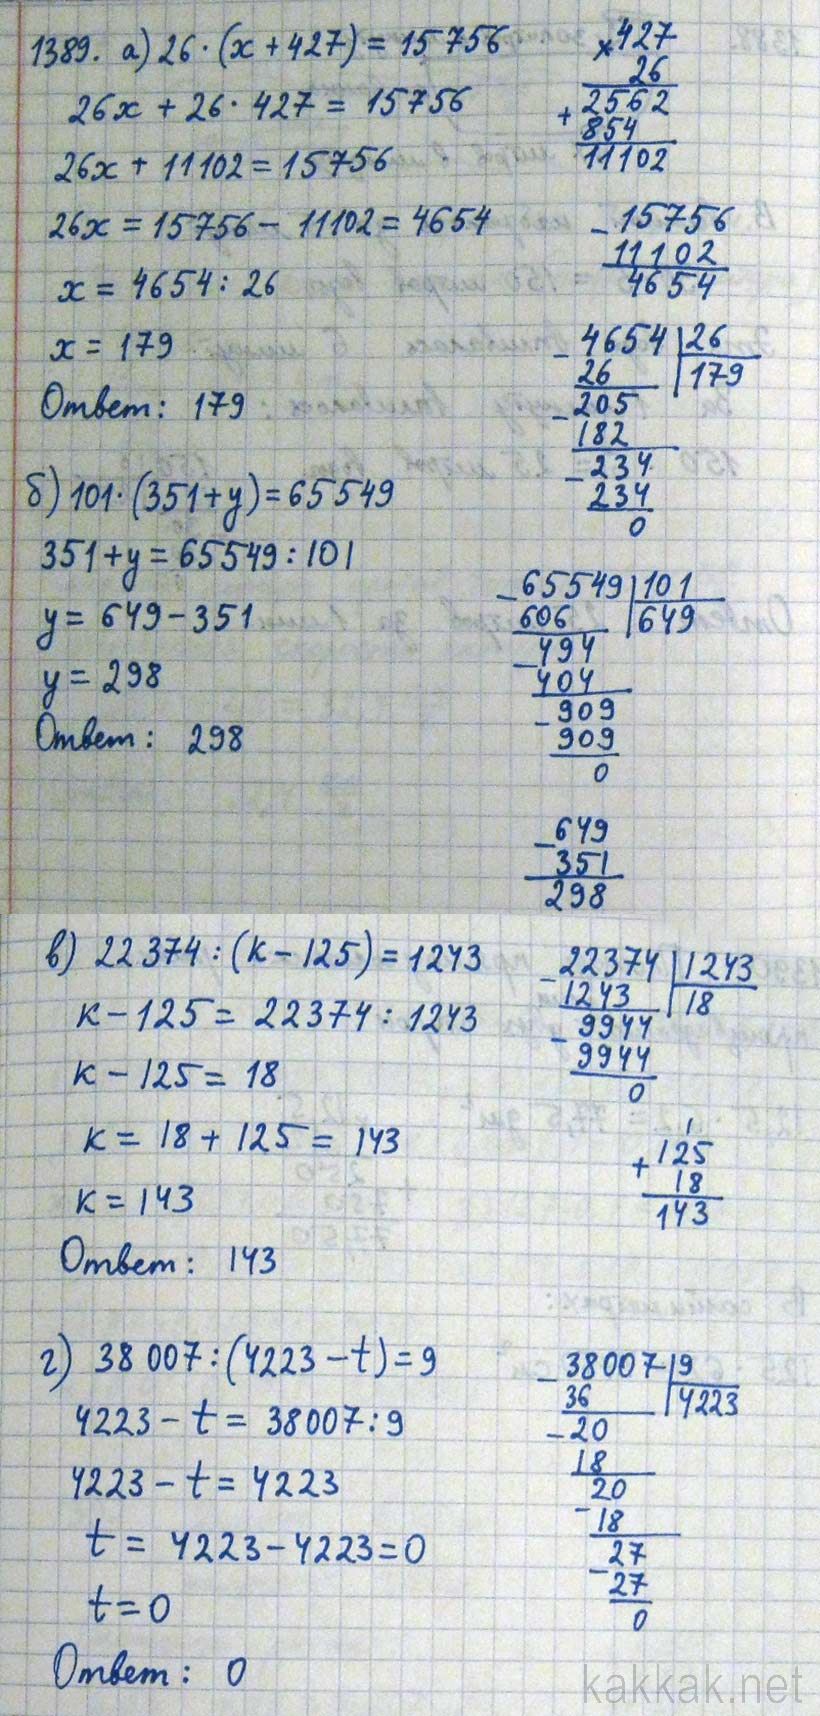 1389. а) 26·(x+427)=15756
26x + 26·427 = 15756
26x + 11102 = 15756
26x = 15756 - 11102 = 4654
x = 4654 : 26
x = 179
Ответ: 179
× 427
26
+ 2562
854
11102
- 15756
11102
4654
- 4654 | 26
26 | 179
- 205
182
- 234
234
0
б) 101·(351+y)=65549
351+y = 65549 : 101
y = 649 - 351
y = 298
Ответ: 298
- 65549 | 101
606 | 649
- 494
404
- 909
909
0
- 649
351
298
в) 22374 : (к-125) = 1243
к-125 = 22374 : 1243
к-125 = 18
к = 18 + 125 = 143
к = 143
Ответ: 143
- 22374 | 1243
1243 | 18
- 9944
9944
0
1
+ 125
18
143
г) 38007 : (4223-t) = 9
4223 - t = 38007 : 9
4223 - t = 4223
t = 4223 - 4223 = 0
t = 0
Ответ: 0
- 38007 | 9
36 | 4223
- 20
18
20
- 18
27
- 27
0
kakkak.net